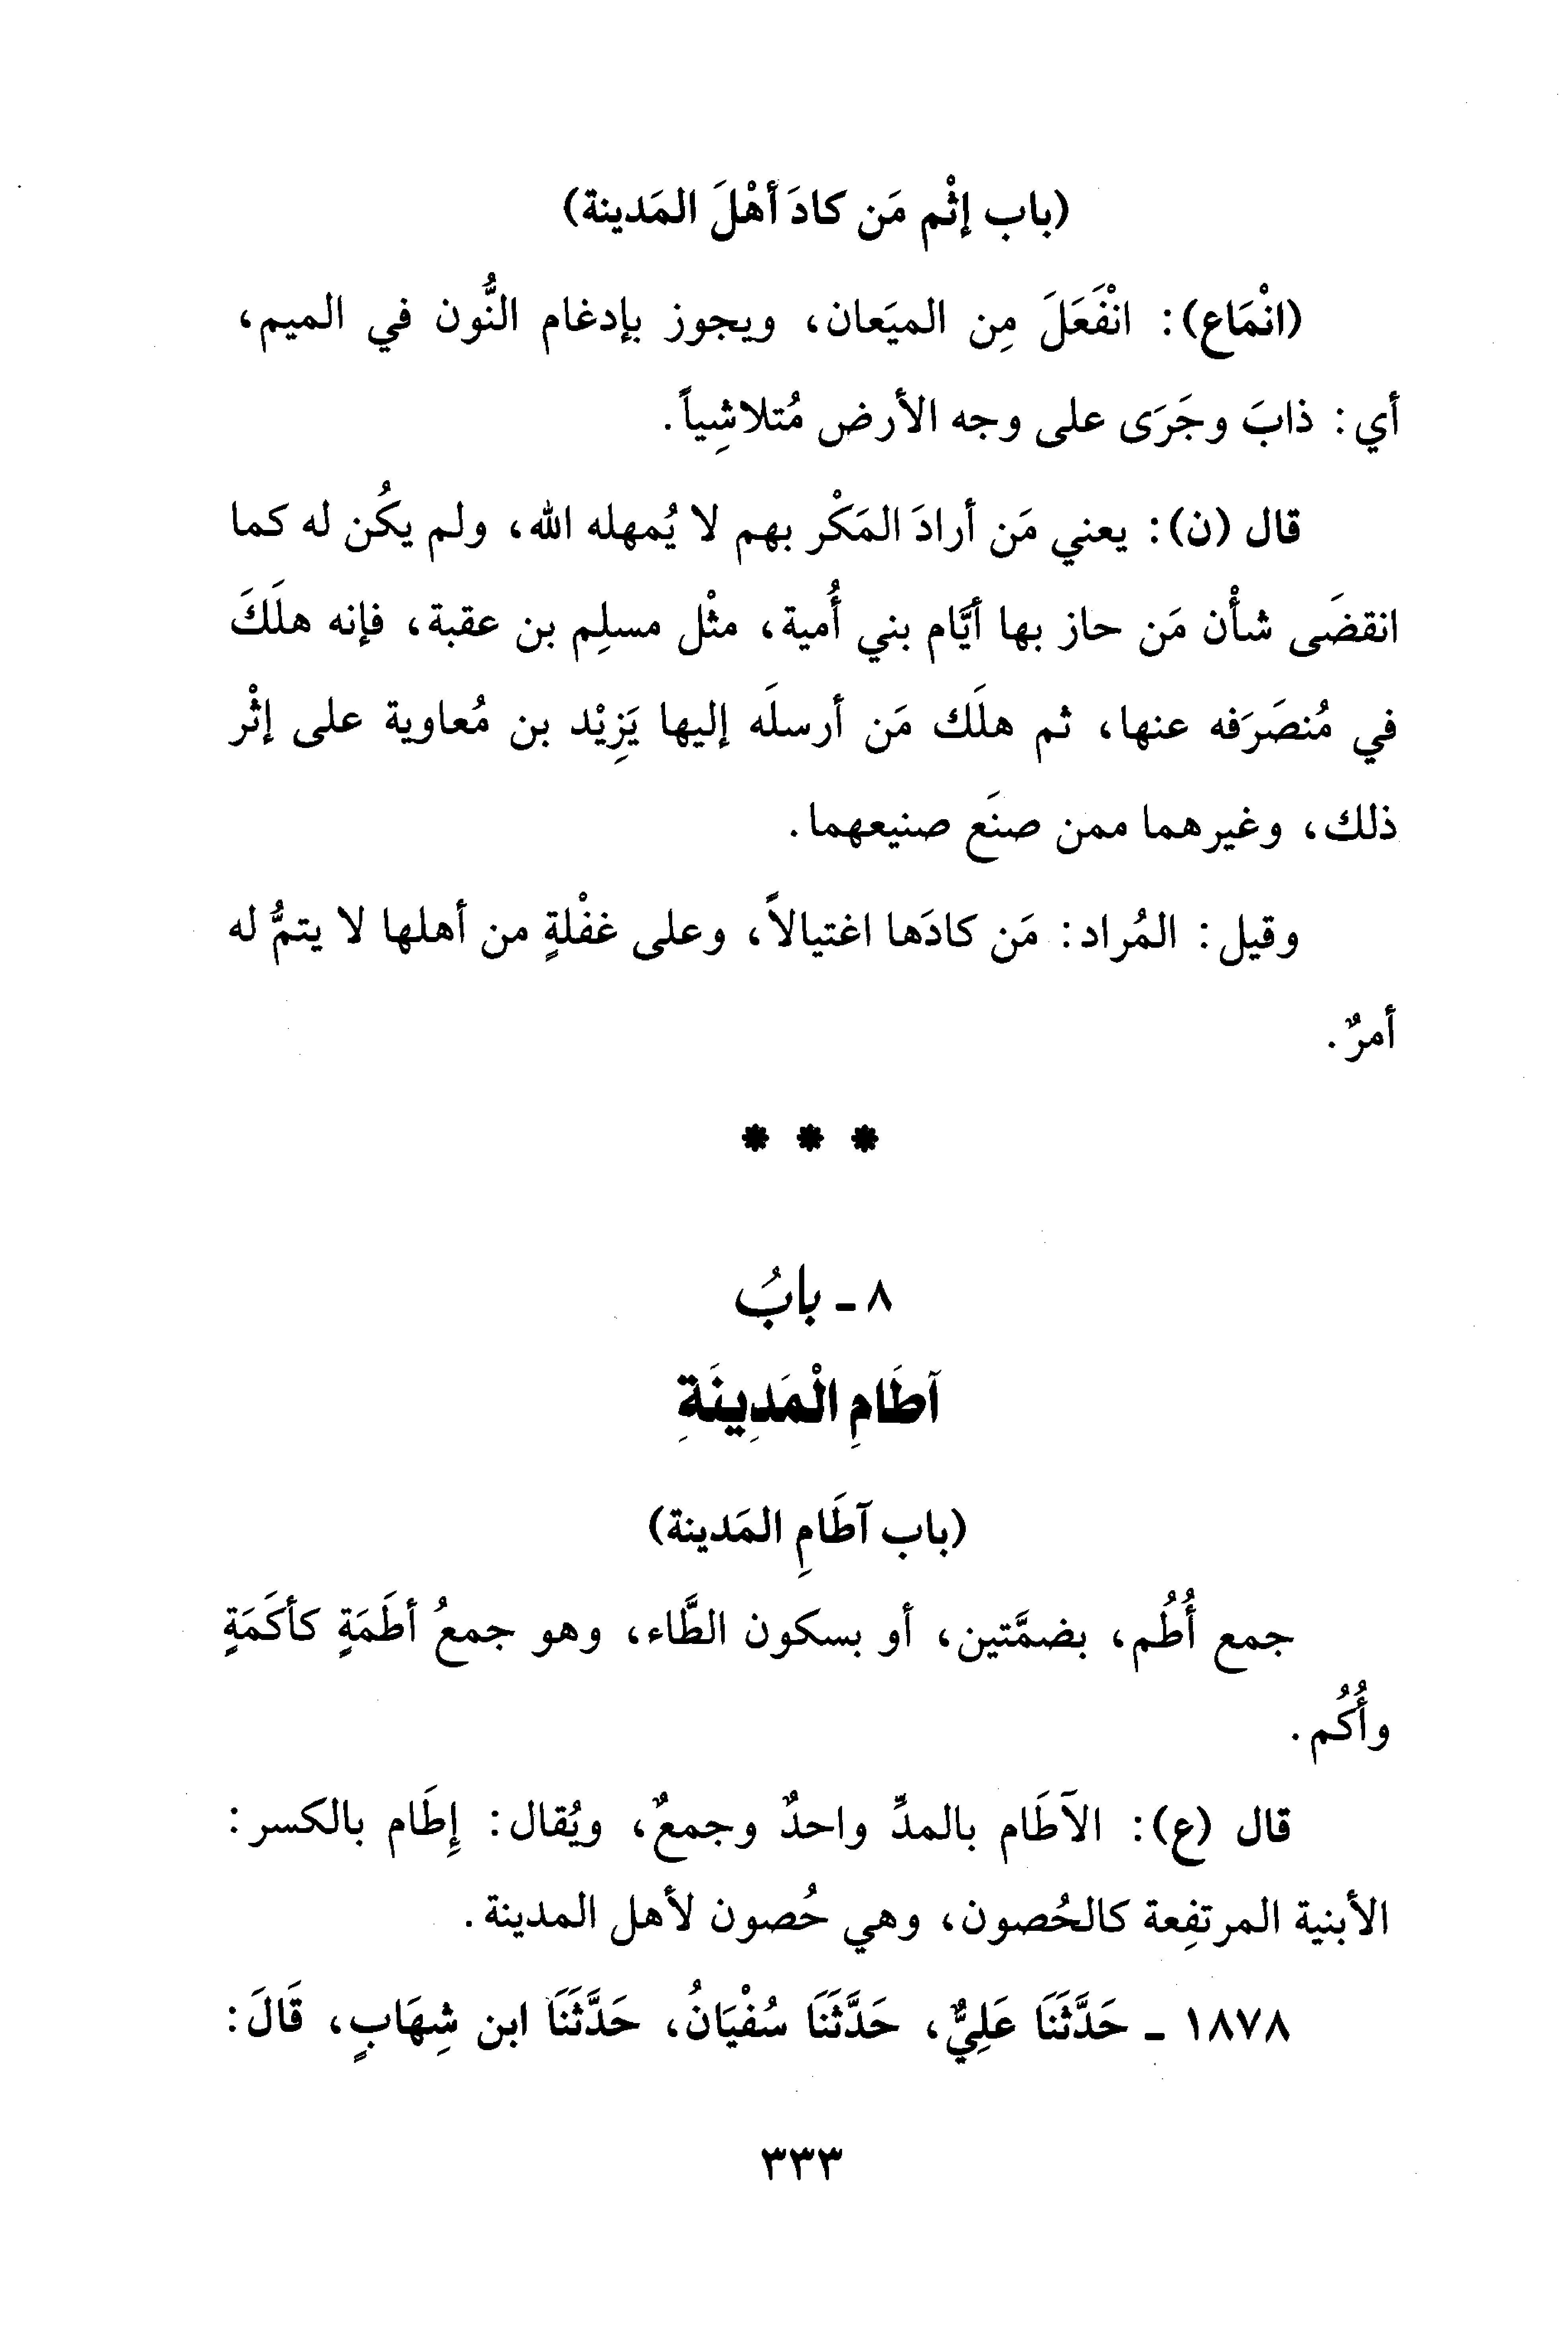 (باب إثْم مَن كادَ أهْلَ المَدينة)
(انْمَاع): انْفَعَلَ مِن الميَعان، ويجوز بإدغام النُّون في الميم،
أي: ذابَ وجَرَى على وجه الأرض مُتلاشِياً.
قال (ن): يعني مَن أرادَ المَكْر بهم لا يُمهله الله، ولم يكُن له كما
انقضَى شأْن مَن حاز بها أيَّام بني أُمية، مثْل مسلِم بن عقبة، فإنه هلَكَ
في مُنصَرَفه عنها، ثم هلَك مَن أرسلَه إليها يَزِيْد بن مُعاوية على إثْر
ذلك، وغيرهما ممن صنَع صنيعهما.
وقيل: المُراد: مَن كادَها اغتيالاً، وعلى غفْلةٍ من أهلها لا يتمُّ له
أمرٌ.
* * *
٨ - بابُ
آطَامِ الْمَدِينَةِ
(باب آطَامِ المَدينة)
جمع أُطُم، بضمَّتين، أو بسكون الطَّاء، وهو جمعُ أطَمَةٍ كأكَمَةٍ
وأُكُم.
قال (ع): الآطَام بالمدِّ واحدٌ وجمعٌ، ويُقال: إِطَام بالكسر:
الأبنية المرتفِعة كالحُصون، وهي حُصون لأهل المدينة.
١٨٧٨ - حَدَّثَنَا عَلِيٌّ، حَدَّثَنَا سُفْيَانُ، حَدَّثَنَا ابن شِهَابٍ، قَالَ:
٣٣٣